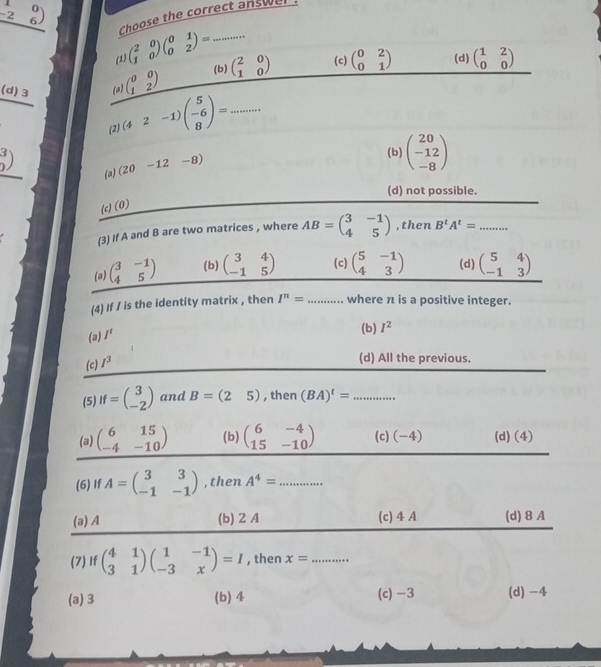 -2 0
6)
Choose the correct answer :
(1) (2 0
1 0) (0 1
0 2) = ...........
(a) (0 0
1 2) (b) (2 0
1 0) (c) (0 2
0 1) (d) (1 2
0 0)
(d) 3
(2) (4 2 -1) (5
-6
8) = ..........
(a) (20 -12 -8) (b) (20
-12
-8)
(c) (0) (d) not possible.
(3) If A and B are two matrices , where AB = (3 -1
4 5) , then BᵗAᵗ = .........
(a) (3 -1
4 5) (b) (3 4
-1 5) (c) (5 -1
4 3) (d) (5 4
-1 3)
(4) If I is the identity matrix , then Iⁿ = ........... where n is a positive integer.
(a) Iᵗ (b) I²
(c) I³ (d) All the previous.
(5) If = (3
-2) and B = (2 5) , then (BA)ᵗ = .............
(a) (6 15
-4 -10) (b) (6 -4
15 -10) (c) (-4) (d) (4)
(6) If A = (3 3
-1 -1) , then A⁴ = .............
(a) A (b) 2 A (c) 4 A (d) 8 A
(7) If (4 1
3 1) (1 -1
-3 x) = I , then x = ...........
(a) 3 (b) 4 (c) -3 (d) -4